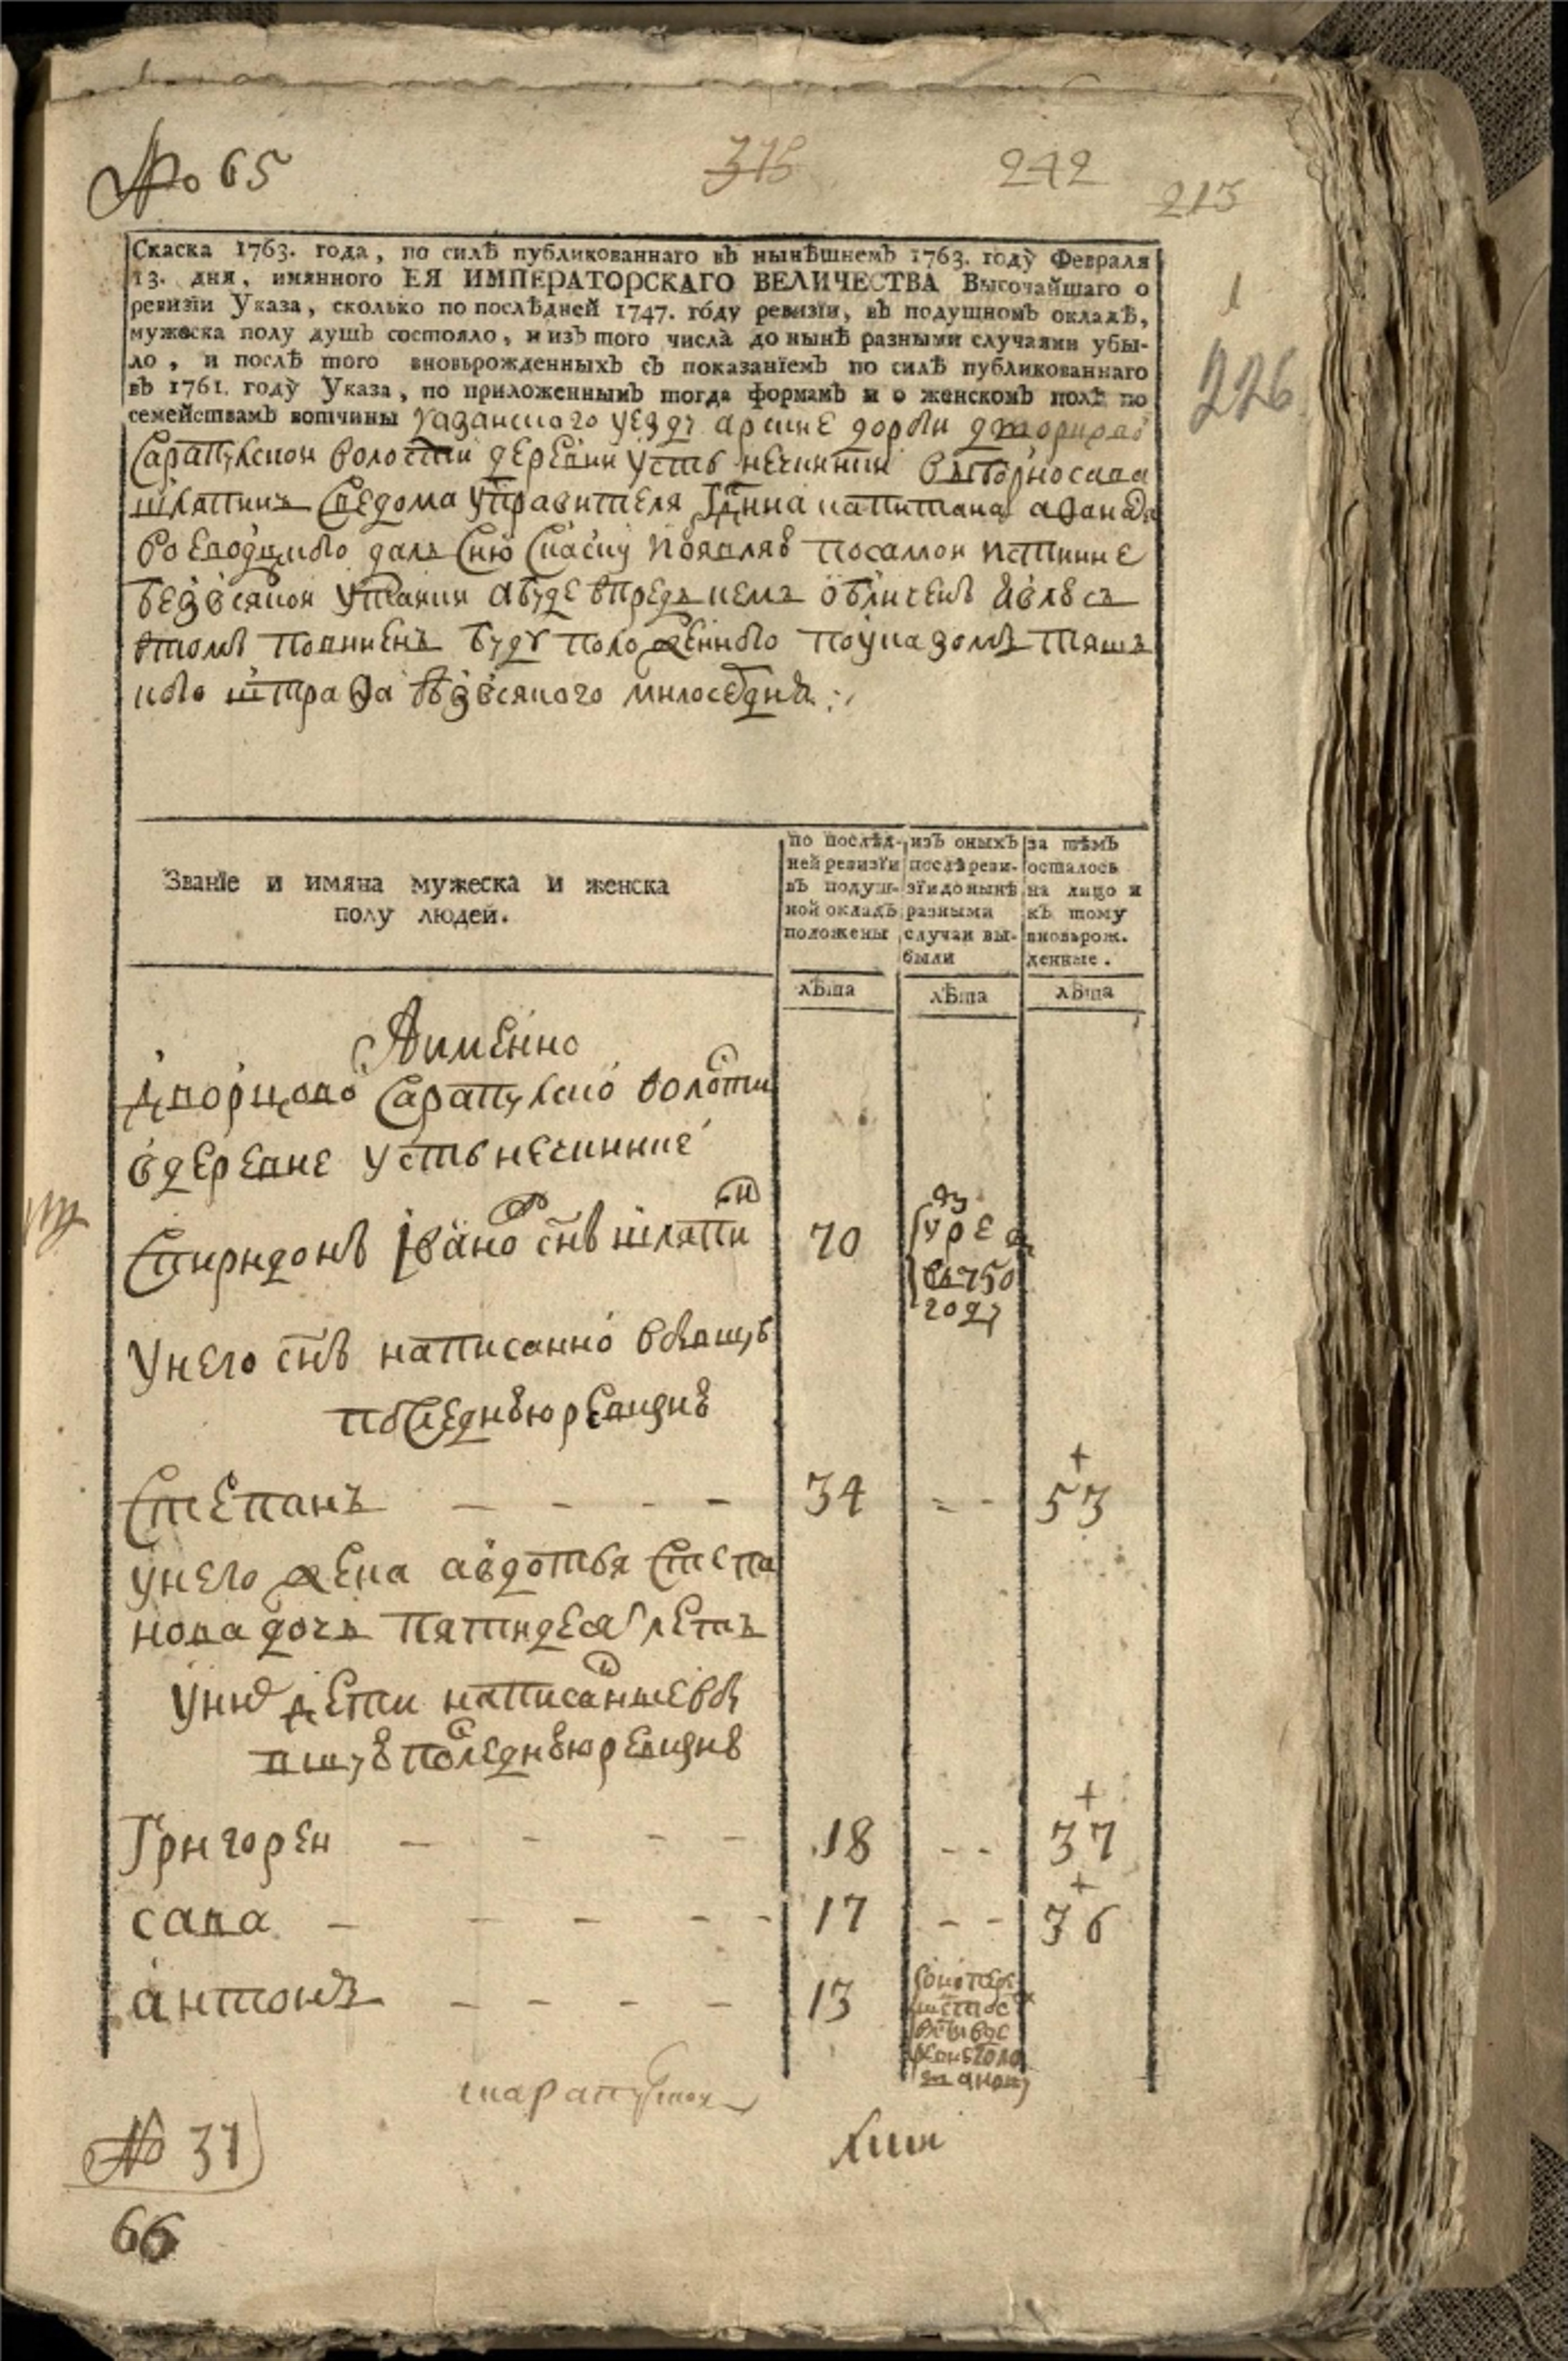 № 65
315
242
215
1
226
Скаска 1763. года, по силѣ публикованнаго въ нынѣшнемъ 1763. году Февраля
13. дня, имянного ЕЯ ИМПЕРАТОРСКАГО ВЕЛИЧЕСТВА Высочайшаго о
ревизїи Указа, сколько по послѣдней 1747. году ревизїи, въ подушномъ окладѣ,
мужеска полу душъ состояло, и изъ того числа до нынѣ разными случаями убы-
ло, и послѣ того вновьрожденныхъ съ показанїемъ по силѣ публикованнаго
въ 1761. году Указа, по приложеннымъ тогда формамъ и о женскомъ полѣ по
семействамъ вотчины казанского уезду арские дороги дворцовой
Сарапулской волости деревни усть нечинки выборно сава
шляпинъ сведома управителя гдина капитана
воеводцкого далъ сию скаску появляя посамой истинне
безвсякой утайки абуде впредь чемъ обличенъ явлюсь
втомъ повиненъ буду положенного поуказомъ тяш
кого штрафа безвсякого милосердия
Званїе и имяна мужеска и женска
полу людей.
по послѣд-
ней ревизїи
въ подуш-
ной окладъ
положены
изъ оныхъ
послѣ реви-
зїи до нынѣ
разными
случаи вы-
были
за тѣмъ
осталось
на лицо и
къ тому
вновьрож.
денные.
лѣта
лѣта
лѣта
Аимѣнно
дворцово Сарапулско волости
вдеревне устьнечинкие
Спиридонъ Iвано снъ шляпи 70
умре
въ 750
году
унего снъ написанно вбывшую
последнюю ревизию
Степанъ 34 - - 53
унего жена авдотья степа
нова дочь пятидесят летъ
уних дети написанные вбы
вшую последнюю ревизию
Григорей 18 - - 37
сава 17 - - 36
антонъ 13
№ 31
66